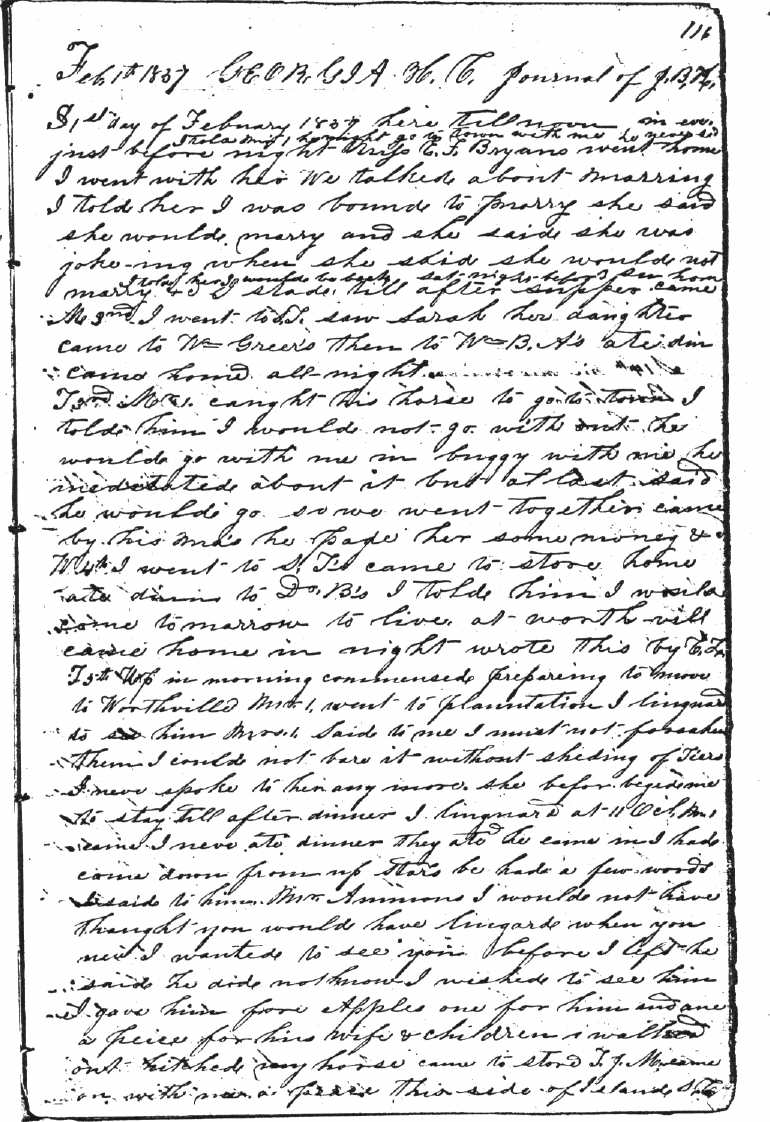 116
Feb 1th 1837 GEORGIA H. C. Journal of J.B.H.
S 1st day of Febuary 1837 here till noon in eve.
I told Mr 1 he might go to town with me he never sd
just before night Miss E. F. Bryans went home
I went with her We talked about Marring
I told her I was bound to marry she said
she would marry and she said she was
joke-ing when she said she would not
I told her I would be back sat night before
marry & I stade till after supper came
M 3nd I went to S.T. saw Sarah her daughter
came to Wm Greers then to Wm B. A's ate din
came home all night
T 3rd Mr 1. caught his horse to go to town I
tolde him I would not go with out he
would go with me in buggy with me he
medetated about it but at last said
he would go so we went together came
by his Ma's he paye her some money &
W 4th I went to S. T's came to store home
ate dinn to Dr. B's I tolde him I would
come tomarrow to live at worth vill
came home in night wrote this by C. L.
T 5th Up in morning commensed preparing to move
to Worthvilld Mr 1. went to plauntation I lingnard
to see him Mrs. 1. Said to me I must not forsaken
them I could not bare it without sheding of Tiers
I neve spoke to her any more. she befor. beged me
to stay till after dinner I lingnard at 11 Ocl, M. 1
came I neve ate dinner they ate he came in I had
come down from up stars he hade a few words
I said to him. Mr. Ammons I would not have
thought you would have lingarde when you
new I wanted to see you before I left he
said he dide not know I wished to see him
I gave him fore Apples one for him and one
a peise for his wife & children i walked
out hitched my horse came to stord T. J. M. came
on with me a peece this side of Islande S. C.